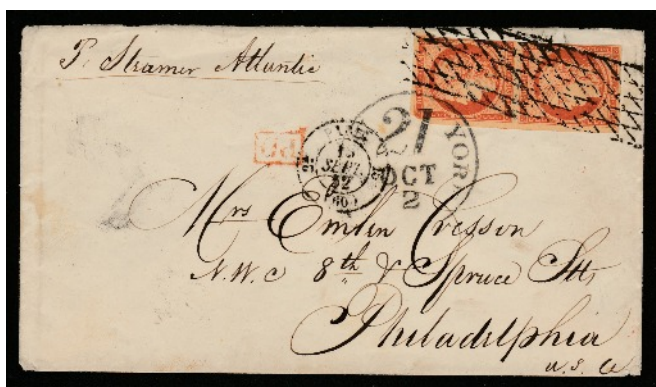 P. Steamer Atlantic
PARIS
15
SEPT.
52
(60)
21
YORK
OCT
2
Mrs Emlen Cresson
N.W.C 8th & Spruce Stts
Philadelphia
U.S. A